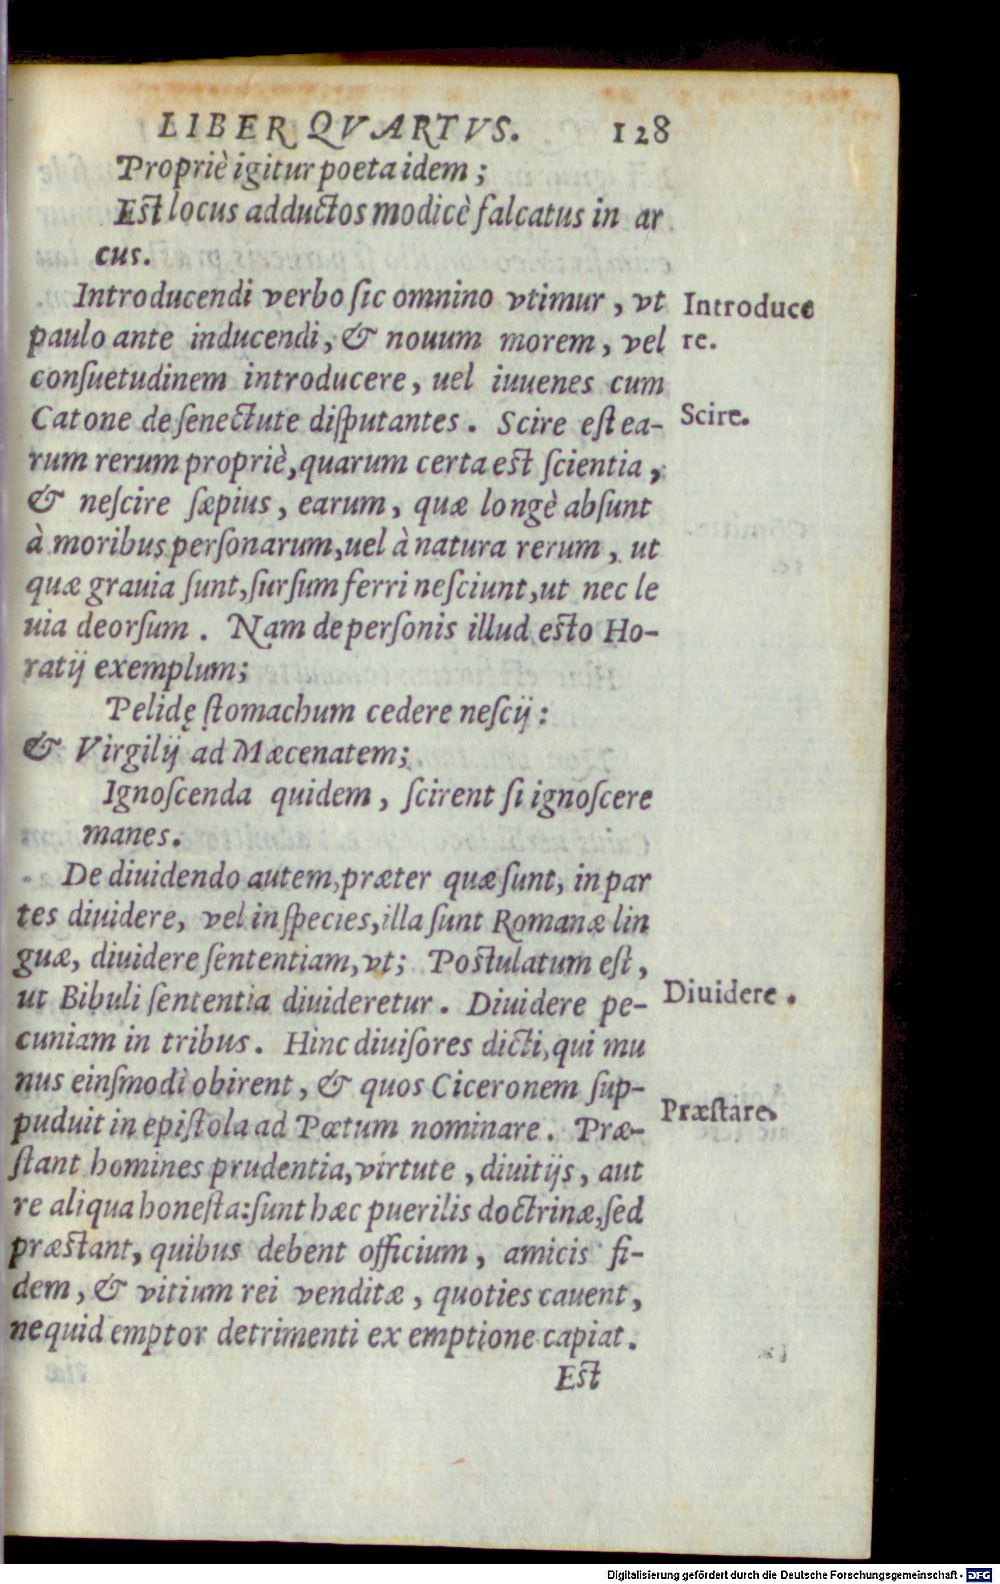 LIBER QVARTVS. 128
Propriè igitur poeta idem;
Est locus adductos modicè falcatus in ar
cus.
Introducendi verbo sic omnino vtimur, vt
Introduce
paulo ante inducendi, & nouum morem, vel
re.
consuetudinem introducere, uel iuuenes cum
Catone de senectute disputantes. Scire est ea-
Scire.
rum rerum propriè, quarum certa est scientia,
& nescire sæpius, earum, quæ longè absunt
à moribus personarum, uel à natura rerum, ut
quæ grauia sunt, sursum ferri nesciunt, ut nec le
uia deorsum. Nam de personis illud esto Ho-
ratij exemplum;
Pelidę stomachum cedere nescij:
& Virgilij ad Mæcenatem;
Ignoscenda quidem, scirent si ignoscere
manes.
De diuidendo autem, præter quæ sunt, in par
tes diuidere, vel in species, illa sunt Romanæ lin
guæ, diuidere sententiam, vt; Postulatum est,
ut Bibuli sententia diuideretur. Diuidere pe-
Diuidere.
cuniam in tribus. Hinc diuisores dicti, qui mu
nus einsmodi obirent, & quos Ciceronem sup-
puduit in epistola ad Pœtum nominare. Præ-
Præstare.
stant homines prudentia, virtute, diuitijs, aut
re aliqua honesta: sunt hæc puerilis doctrinæ, sed
præstant, quibus debent officium, amicis fi-
dem, & vitium rei venditæ, quoties cauent,
nequid emptor detrimenti ex emptione capiat.
Est
Digitalisierung gefördert durch die Deutsche Forschungsgemeinschaft - DFG